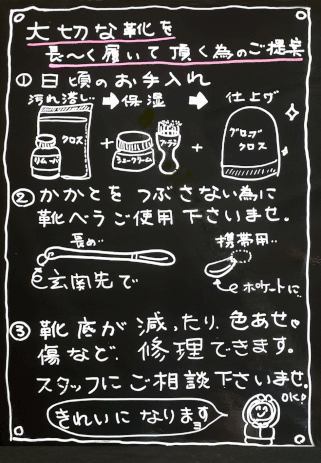 大切な靴を
長〜く履いて頂く為のご提案
①日頃のお手入れ
汚れ落し‥➡保湿➡仕上げ
クロス
リムーバー
+
シュークリーム
ブラシ
+
グローブ
クロス
②かかとをつぶさない為に
靴ベラご使用下さいませ。
長め‥
携帯用‥
玄関先で
ポケットに‥
③靴底が減ったり、色あせや
傷など、修理できます。
スタッフにご相談下さいませ。
きれいになりますョ
OK!